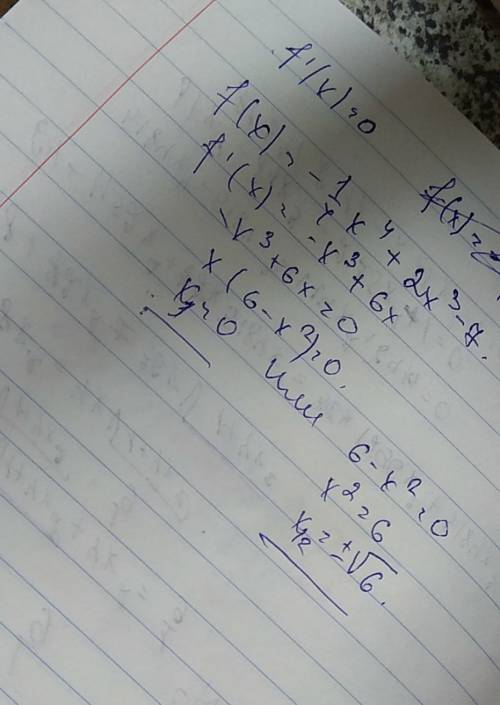 f'(x)=0
f(x)=
f(x)= -1/4 x^4 + 2x^3 - 7.
f'(x)= -x^3 + 6x
-x^3 + 6x = 0
x(6-x^2)=0.
x=0 или 6-x^2=0
x^2=6
x_{1,2}=±√6.